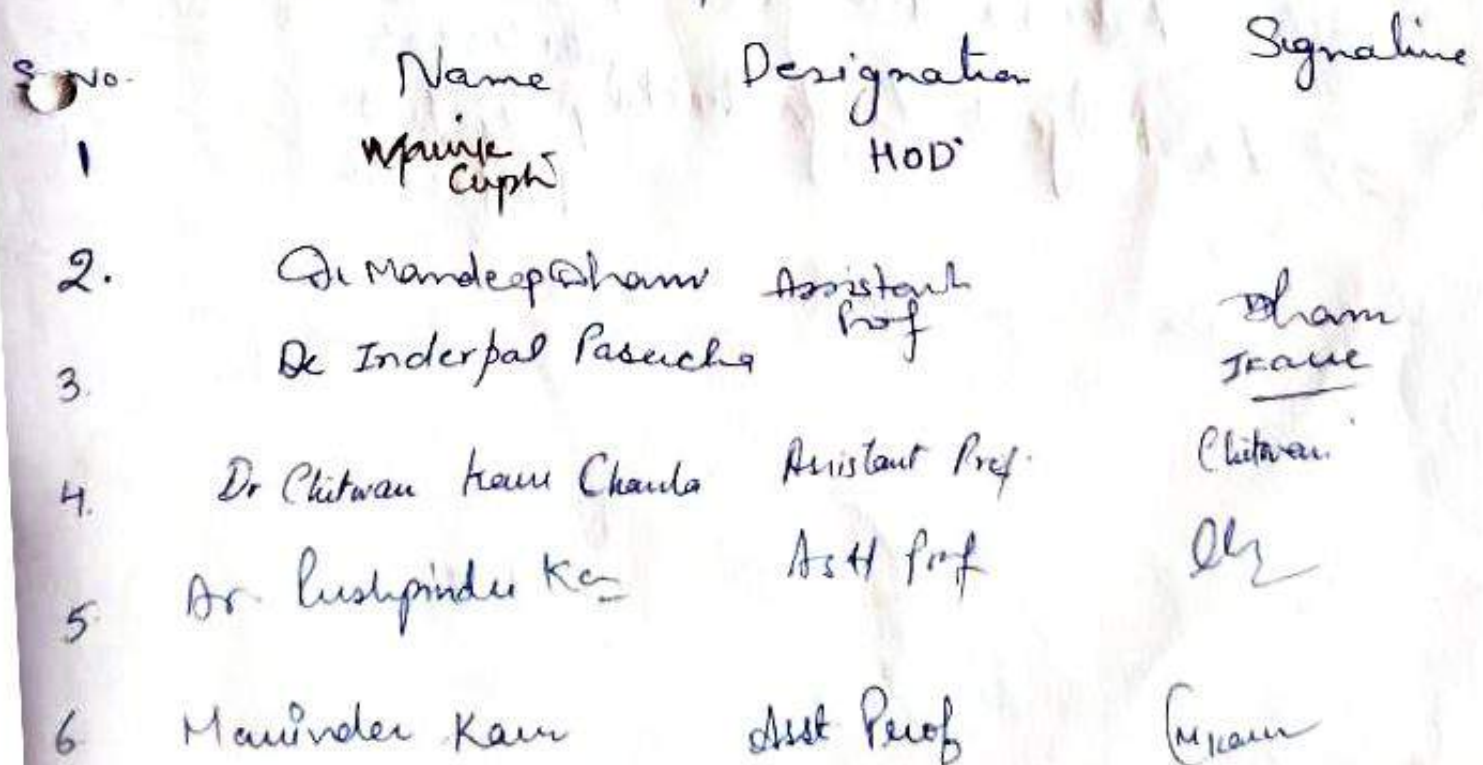 S No. Name Designation Signature
1 HOD
2. Dr Mandeep Dham Assistant Prof Dham
3. Dr Inderpal Pasricha Jkaur
4. Dr Chitwan Kaur Chawla Assistant Prof. Chitwan
5 Dr. Pushpinder Kaur Astt Prof
6 Maninder Kaur Asst Prof Mkaur